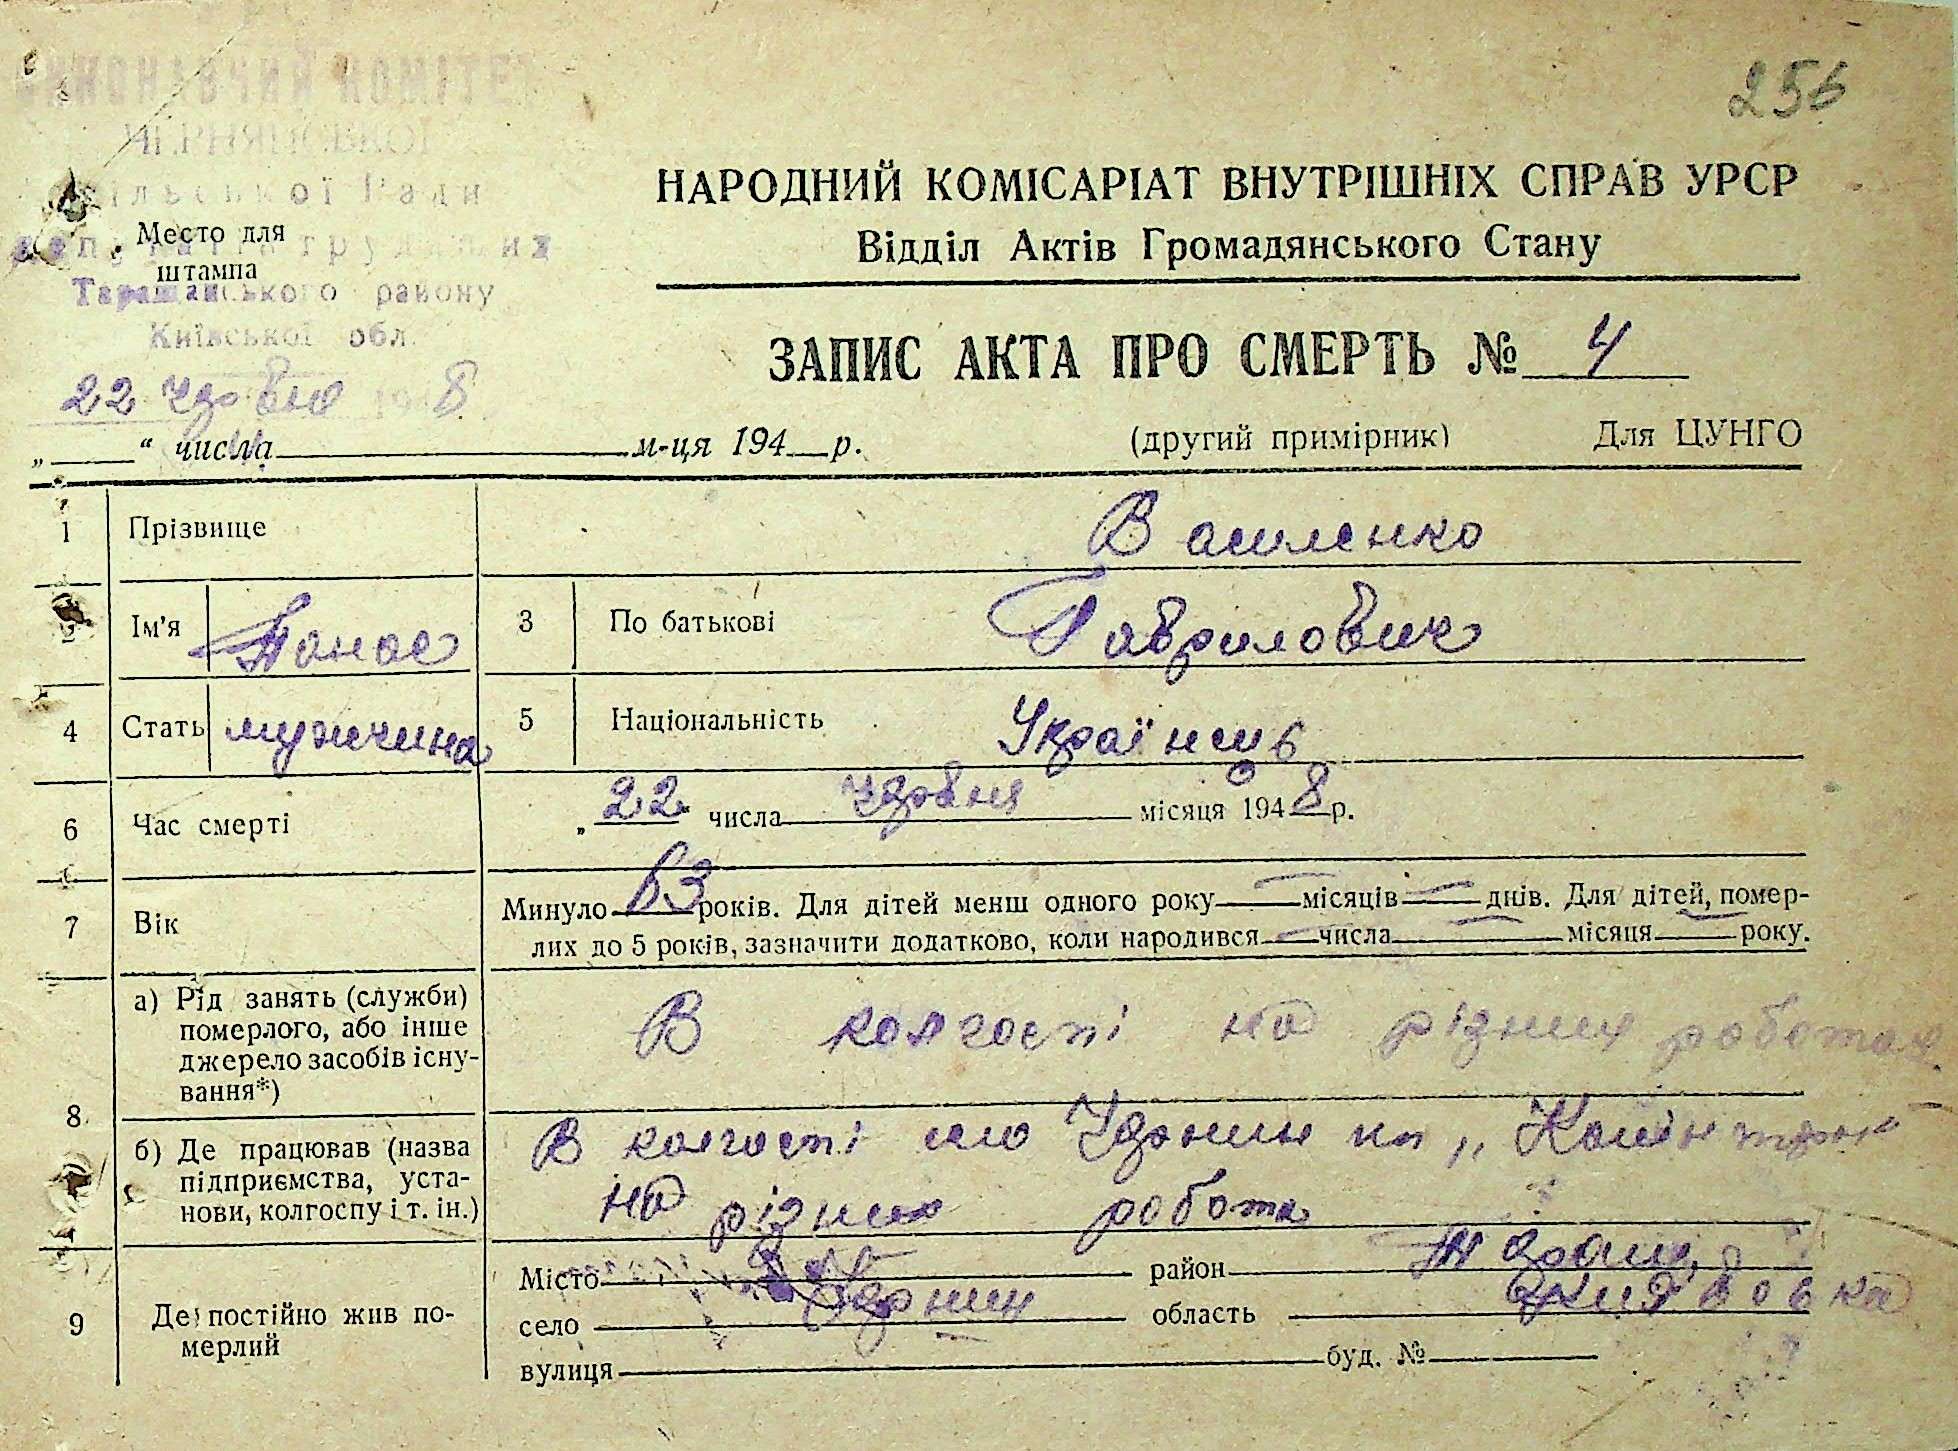 256
ВИКОНАВЧИЙ КОМІТЕТ
ЧЕРНИНСЬКОЇ
сільської Ради
депутатів трудящих
Таращанського району
Київської обл.
22 червня 1948
Место для
штампа
НАРОДНИЙ КОМІСАРІАТ ВНУТРІШНІХ СПРАВ УРСР
Відділ Актів Громадянського Стану
ЗАПИС АКТА ПРО СМЕРТЬ № 4
„ “ числа м-ця 194 р.
(другий примірник) Для ЦУНГО
1 Прізвище Василенко
2 Ім'я Панас 3 По батькові Гаврилович
4 Стать мужчина 5 Національність Українець
6 Час смерті „22“ числа червня місяця 1948 р.
7 Вік Минуло 63 років. Для дітей менш одного року — місяців — днів. Для дітей, помер-
лих до 5 років, зазначити додатково, коли народився — числа — місяця — року.
8 а) Рід занять (служби) померлого, або інше джерело засобів існу-вання*) В колгоспі на різних роботах
б) Де працював (назва підприємства, уста-нови, колгоспу і т. ін.) В колгоспі село Чернин
на різних робота
9 Де постійно жив по-мерлий
Місто район Таращ.
село Чернин область Київська
вулиця буд. №